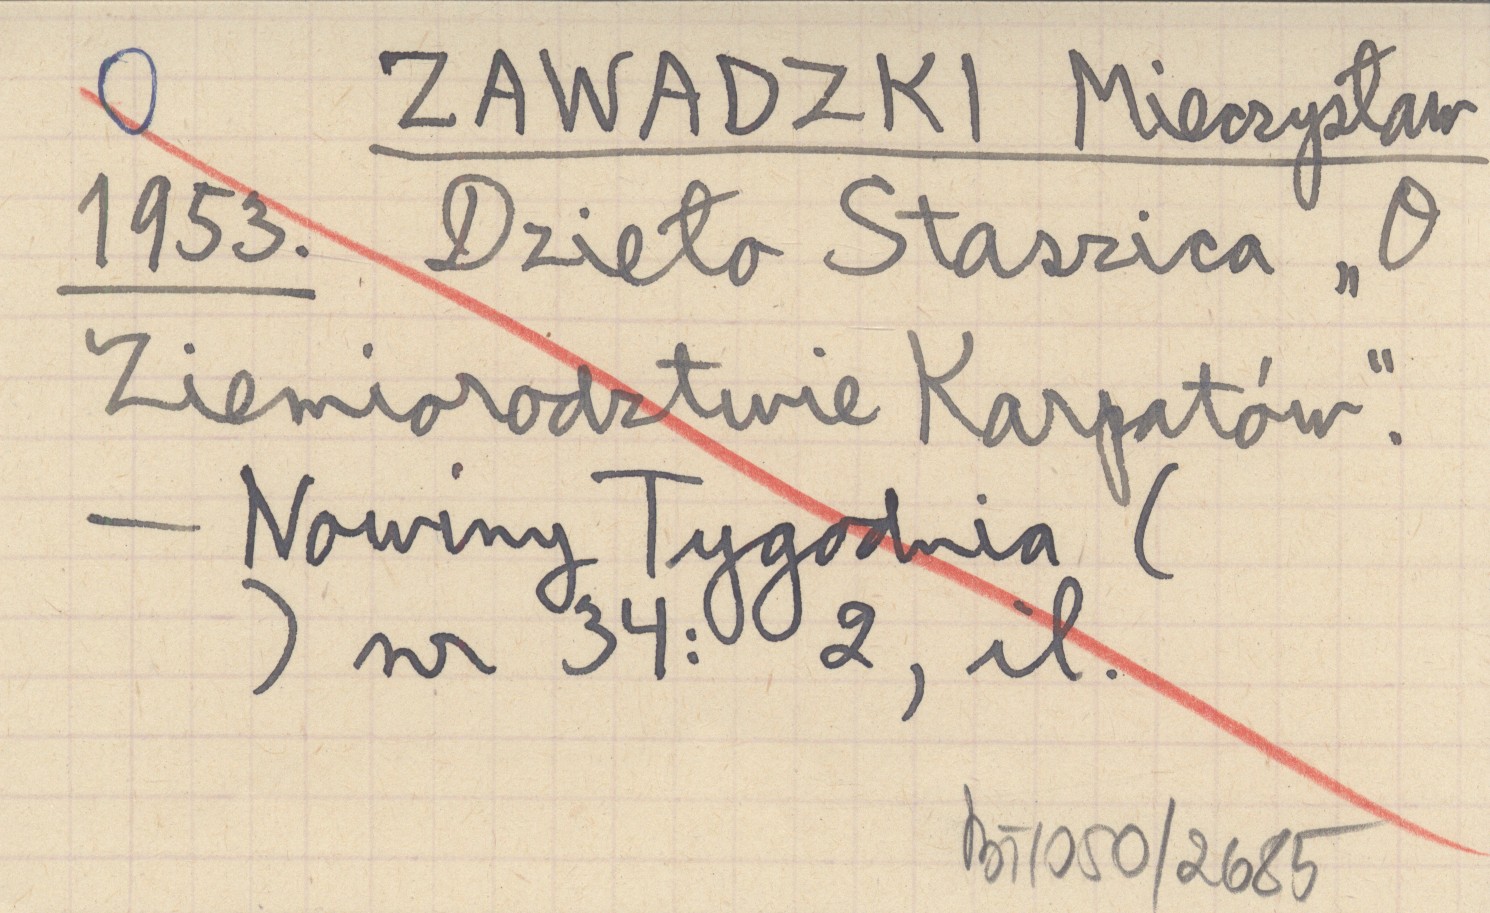 O ZAWADZKI Mieczysław
1953. Dzieło Staszica „O
Ziemiorodztwie Karpatów".
— Nowiny Tygodnia (
) nr 34: 2, il.
050/2685